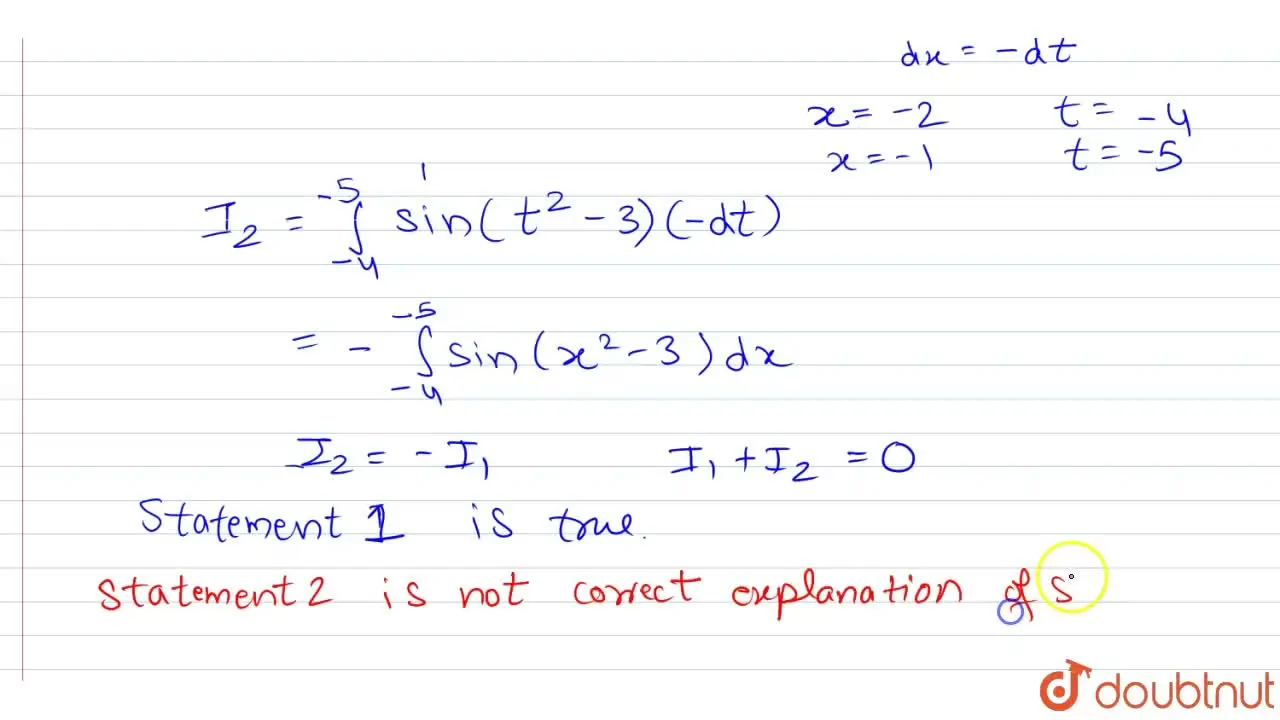 dx = -dt
x = -2 t = -4
x = -1 t = -5
I₂ = ∫₋₄⁻⁵ sin(t² - 3)(-dt)
= - ∫₋₄⁻⁵ sin(x² - 3) dx
I₂ = - I₁ I₁ + I₂ = 0
Statement 1 is true.
Statement 2 is not correct explanation of S
doubtnut